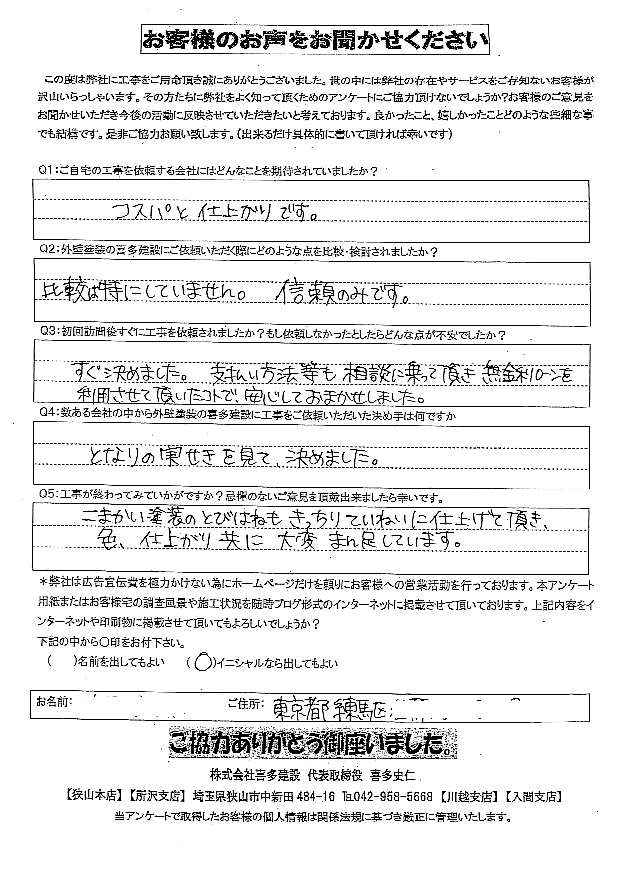 お客様のお声をお聞かせください
この度は弊社に工事をご用命頂き誠にありがとうございました。世の中には弊社の存在やサービスをご存知ないお客様が
沢山いらっしゃいます。その方たちに弊社をよく知って頂くためのアンケートにご協力頂けないでしょうか?お客様のご意見を
お聞かせいただき今後の活動に反映させていただきたいと考えております。良かったこと、嬉しかったことどのような些細な事
でも結構です。是非ご協力お願い致します。(出来るだけ具体的に書いて頂ければ幸いです)
Q1:ご自宅の工事を依頼する会社にはどんなことを期待されていましたか?
コスパと仕上がりです。
Q2:外壁塗装の喜多建設にご依頼いただく際にどのような点を比較・検討されましたか?
比較は特にしていません。 信頼のみです。
Q3:初回訪問後すぐに工事を依頼されましたか?もし依頼しなかったとしたらどんな点が不安でしたか?
すぐ決めました。 支払い方法等も相談に乗って頂き無金利ローンを
利用させて頂いたコトで、安心しておまかせしました。
Q4:数ある会社の中から外壁塗装の喜多建設に工事をご依頼いただいた決め手は何ですか
となりの実せきを見て、決めました。
Q5:工事が終わってみていかがですか?忌憚のないご意見を頂戴出来ましたら幸いです。
こまかい塗装のとびはねもきっちりていねいに仕上げて頂き、
色、仕上がり共に大変まん足しています。
*弊社は広告宣伝費を極力かけない為にホームページだけを頼りにお客様への営業活動を行っております。本アンケート
用紙またはお客様宅の調査風景や施工状況を随時ブログ形式のインターネットに掲載させて頂いております。上記内容をイ
ンターネットや印刷物に掲載させて頂いてもよろしいでしょうか?
下記の中から○印をお付下さい。
( )名前を出してもよい (○)イニシャルなら出してもよい
お名前: ご住所: 東京都練馬区
ご協力ありがとう御座いました。
株式会社喜多建設 代表取締役 喜多史仁
【狭山本店】【所沢支店】埼玉県狭山市中新田484-16 ℡042-958-5668【川越支店】【入間支店】
当アンケートで取得したお客様の個人情報は関係法規に基づき厳正に管理いたします。